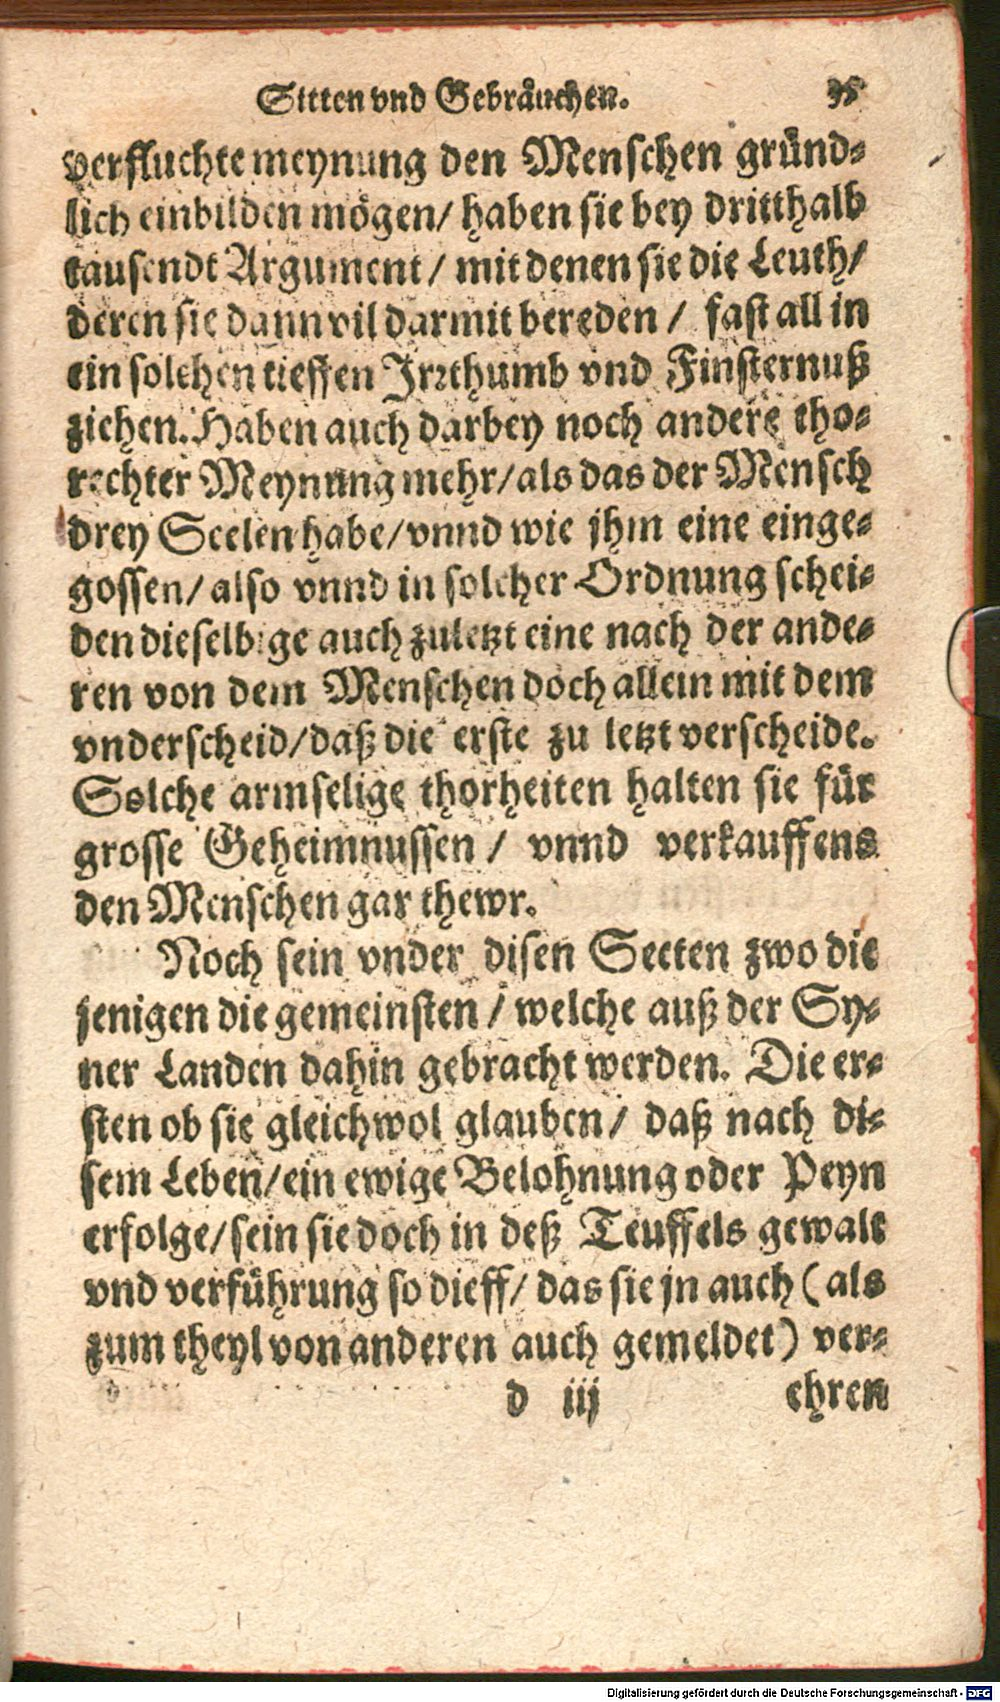 Sitten vnd Gebräuchen. 35
verfluchte meynung den Menschen gründ-
lich einbilden mögen/ haben sie bey dritthalb
tausendt Argument/ mit denen sie die Leuth/
deren sie dann vil darmit bereden/ fast all in
ein solchen tieffen Irrthumb vnd Finsternuß
ziehen. Haben auch darbey noch andere tho-
rechter Meynung mehr/ als das der Mensch
drey Seelen habe/ vnnd wie jhm eine einge-
gossen/ also vnnd in solcher Ordnung schei-
den dieselbige auch zuletzt eine nach der ande-
ren von dem Menschen doch allein mit dem
vnderscheid/ daß die erste zu letzt verscheide.
Solche armselige thorheiten halten sie für
grosse Geheimnussen/ vnnd verkauffens
den Menschen gar thewr.
Noch sein vnder disen Secten zwo die
jenigen die gemeinsten/ welche auß der Sy-
ner Landen dahin gebracht werden. Die er-
sten ob sie gleichwol glauben/ daß nach di-
sem Leben/ ein ewige Belohnung oder Peyn
erfolge/ sein sie doch in deß Teuffels gewalt
vnd verführung so dieff/ das sie jn auch (als
zum theyl von anderen auch gemeldet) ver-
d iij ehren
Digitalisierung gefördert durch die Deutsche Forschungsgemeinschaft - DFG